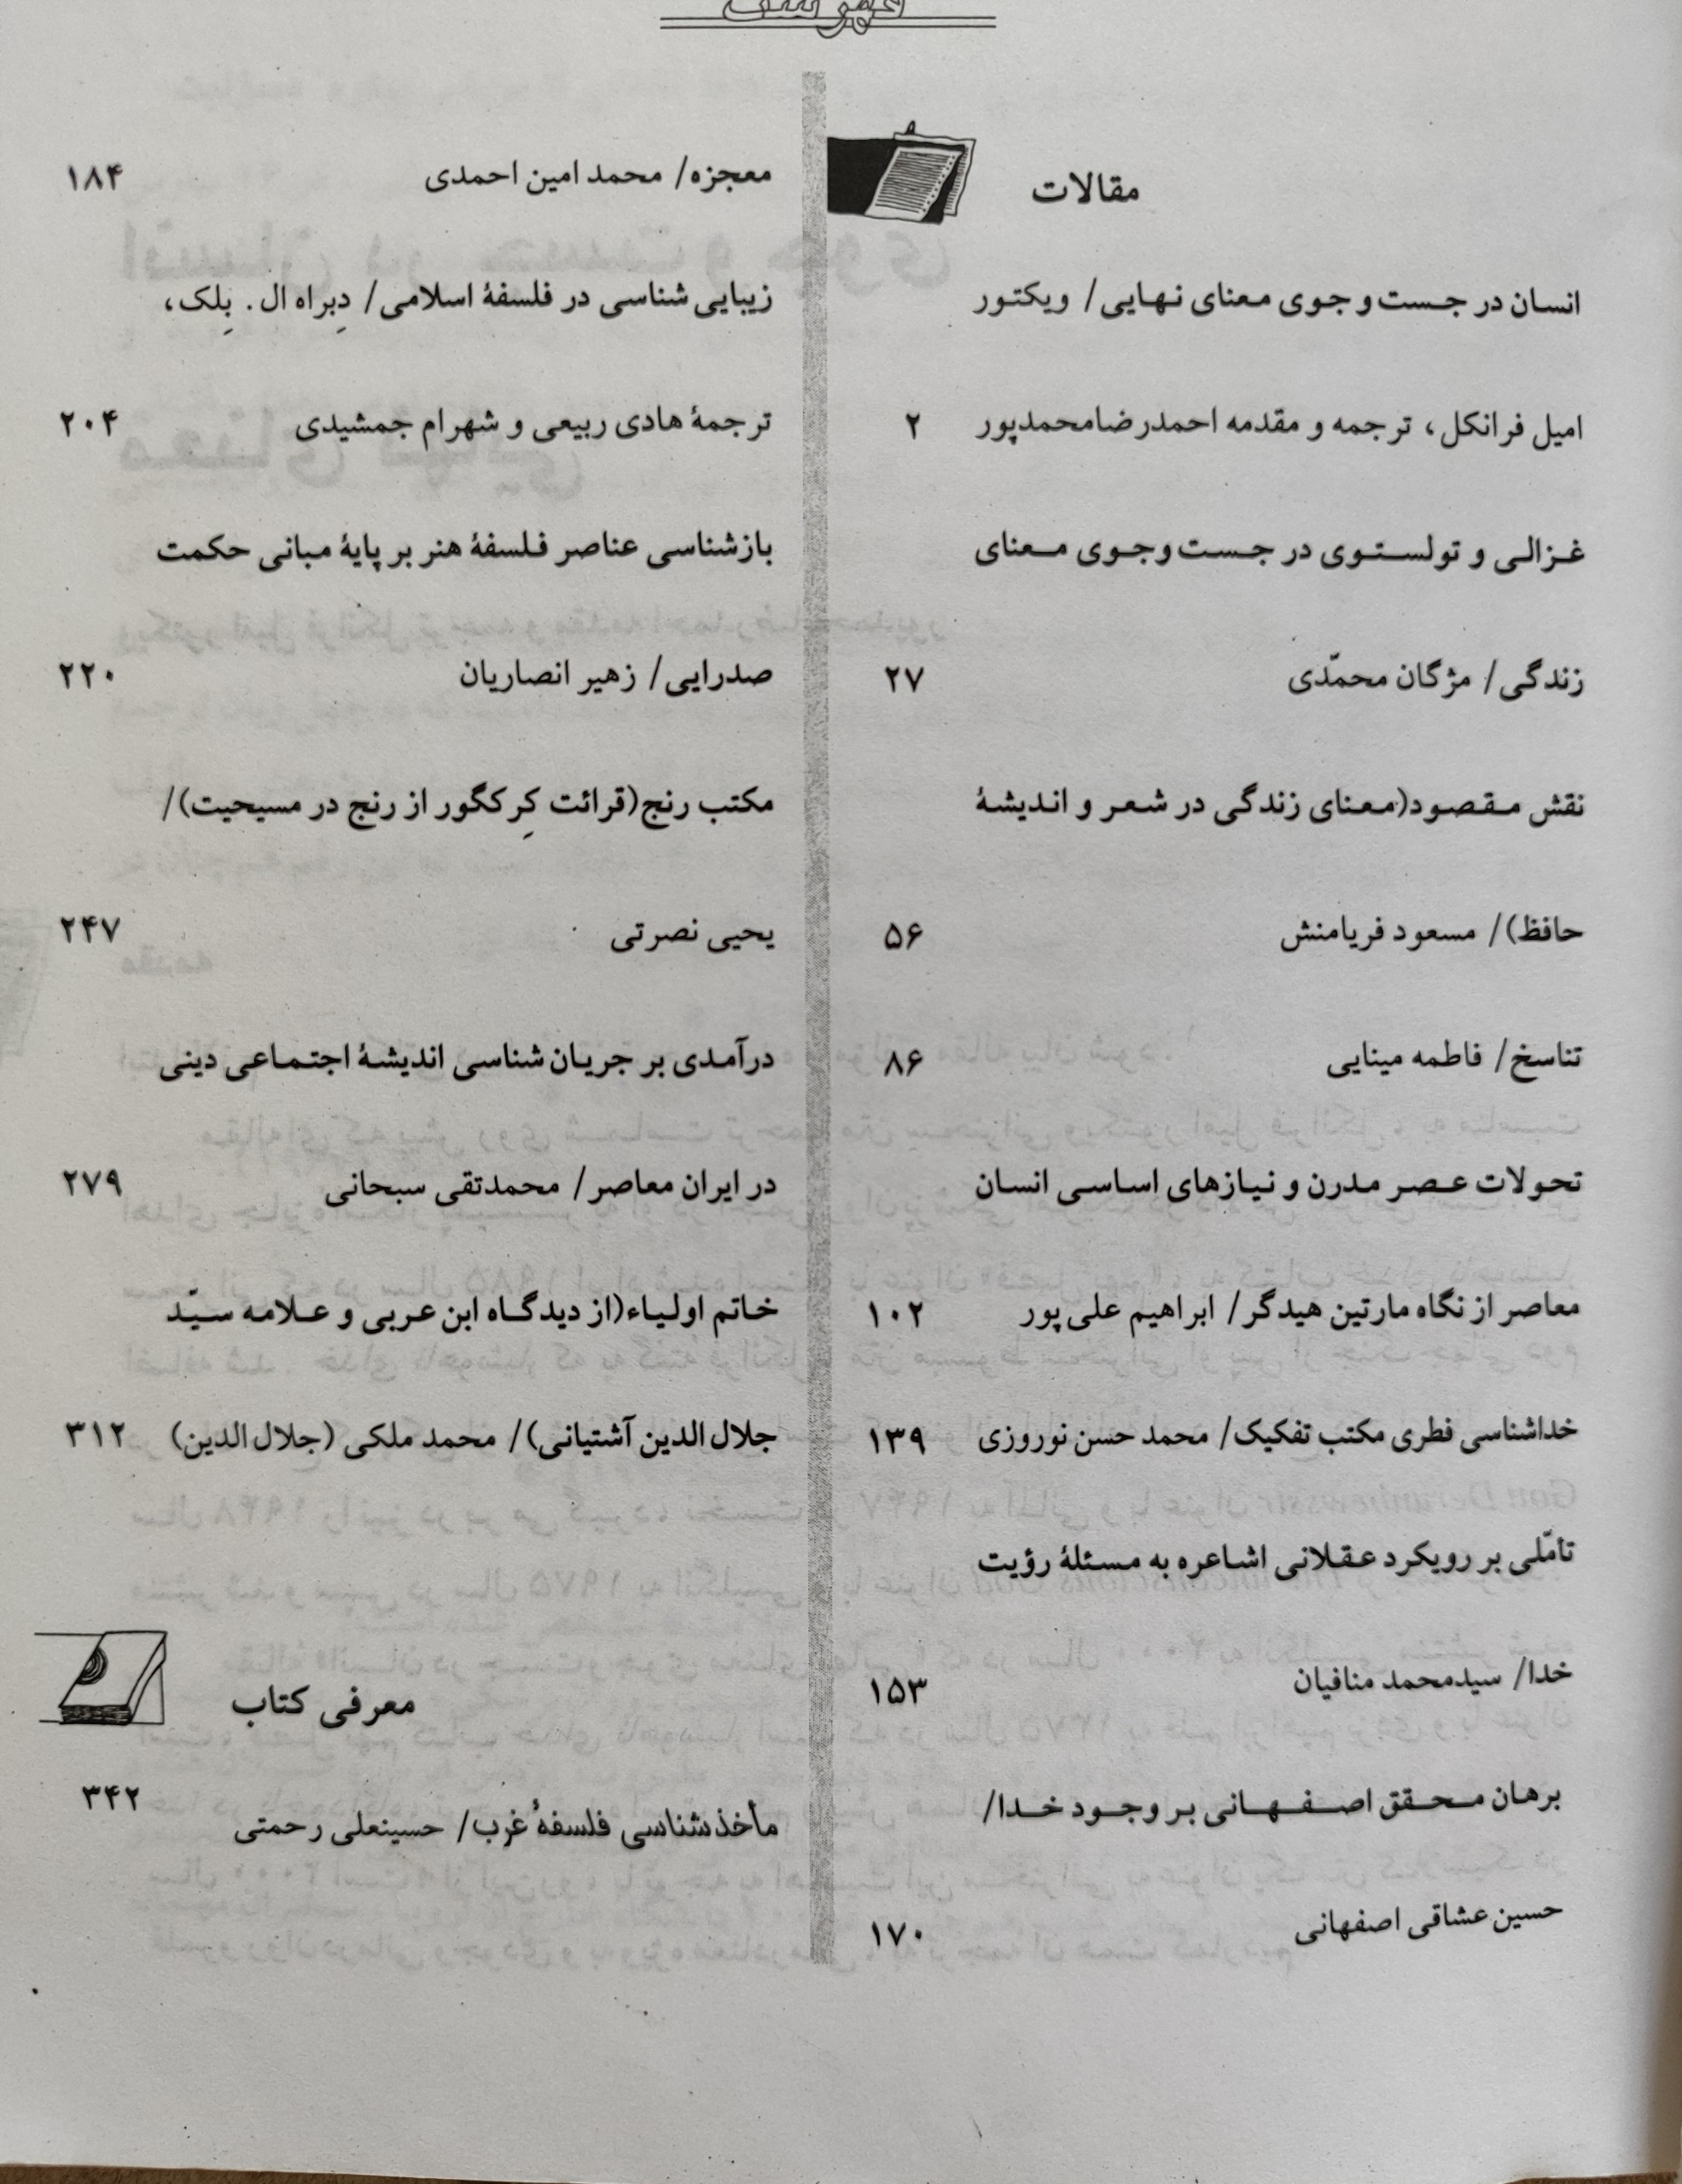 فهرست
مقالات
انسان در جست و جوی معنای نهایی/ ویکتور
امیل فرانکل، ترجمه و مقدمه احمدرضامحمدپور ۲
غزالی و تولستوی در جست وجوی معنای
زندگی/ مژگان محمّدی ۲۷
نقش مقصود(معنای زندگی در شعر و اندیشهٔ
حافظ)/ مسعود فریامنش ۵۶
تناسخ/ فاطمه مینایی ۸۶
تحولات عصر مدرن و نیازهای اساسی انسان
معاصر از نگاه مارتین هیدگر/ ابراهیم علی پور ۱۰۲
خداشناسی فطری مکتب تفکیک/ محمد حسن نوروزی ۱۳۹
تأمّلی بر رویکرد عقلانی اشاعره به مسئلهٔ رؤیت
خدا/ سیدمحمد منافیان ۱۵۳
برهان محقق اصفهانی بر وجود خدا/
حسین عشاقی اصفهانی ۱۷۰
معجزه/ محمد امین احمدی ۱۸۴
زیبایی شناسی در فلسفهٔ اسلامی/ دِبراه ال. بِلک،
ترجمهٔ هادی ربیعی و شهرام جمشیدی ۲۰۴
بازشناسی عناصر فلسفهٔ هنر بر پایهٔ مبانی حکمت
صدرایی/ زهیر انصاریان ۲۲۰
مکتب رنج(قرائت کِرکگور از رنج در مسیحیت)/
یحیی نصرتی ۲۴۷
درآمدی بر جریان شناسی اندیشهٔ اجتماعی دینی
در ایران معاصر/ محمدتقی سبحانی ۲۷۹
خاتم اولیاء(از دیدگاه ابن عربی و علامه سیّد
جلال الدین آشتیانی)/ محمد ملکی (جلال الدین) ۳۱۲
معرفی کتاب
مأخذشناسی فلسفهٔ غرب/ حسینعلی رحمتی ۳۴۲